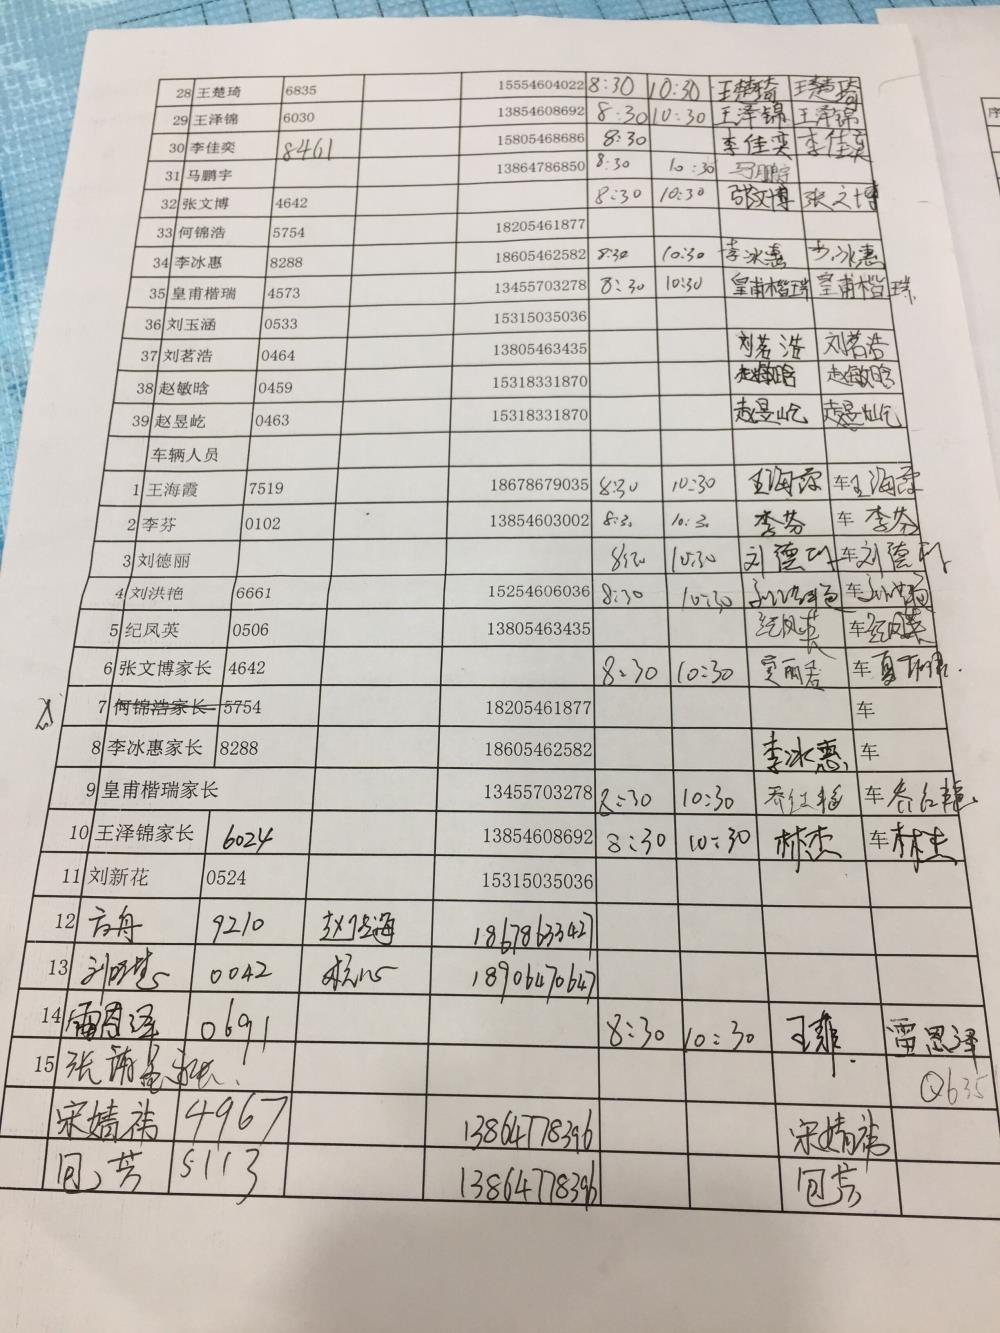 28 王楚琦 6835 15554604022 8:30 10:30 王楚琦 王楚琦
29 王泽锦 6030 13854608692 8:30 10:30 王泽锦 王泽锦
30 李佳奕 8461 15805468686 8:30 李佳奕 李佳奕
31 马鹏宇 13864786850 8:30 10:30 马鹏宇
32 张文博 4642 8:30 10:30 张文博 张文博
33 何锦浩 5754 18205461877
34 李冰惠 8288 18605462582 8:30 10:30 李冰惠 李冰惠
35 皇甫楷瑞 4573 13455703278 8:30 10:30 皇甫楷瑞 皇甫楷瑞
36 刘玉涵 0533 15315035036
37 刘茗浩 0464 13805463435 刘茗浩 刘茗浩
38 赵敏晗 0459 15318331870 赵敏晗 赵敏晗
39 赵昱屹 0463 15318331870 赵昱屹 赵昱屹
车辆人员
1 王海霞 7519 18678679035 8:30 10:30 王海霞 车 王海霞
2 李芬 0102 13854603002 8:30 10:30 李芬 车 李芬
3 刘德丽 8:30 10:30 刘德丽 车 刘德丽
4 刘洪艳 6661 15254606036 8:30 10:30 车
5 纪凤英 0506 13805463435 纪凤英 车 纪凤英
6 张文博家长 4642 8:30 10:30 车
7 何锦浩家长 5754 18205461877 车
8 李冰惠家长 8288 18605462582 李冰惠 车
9 皇甫楷瑞家长 13455703278 8:30 10:30 车
10 王泽锦家长 6024 13854608692 8:30 10:30 林杰 车 林杰
11 刘新花 0524 15315035036
12 方舟 9210 18678633427
13 0042 18906470647
14 雷恩泽 0691 8:30 10:30 雷恩泽
15 张 Q635
宋婧祎 4967 13864778396 宋婧祎
5113 13864778396